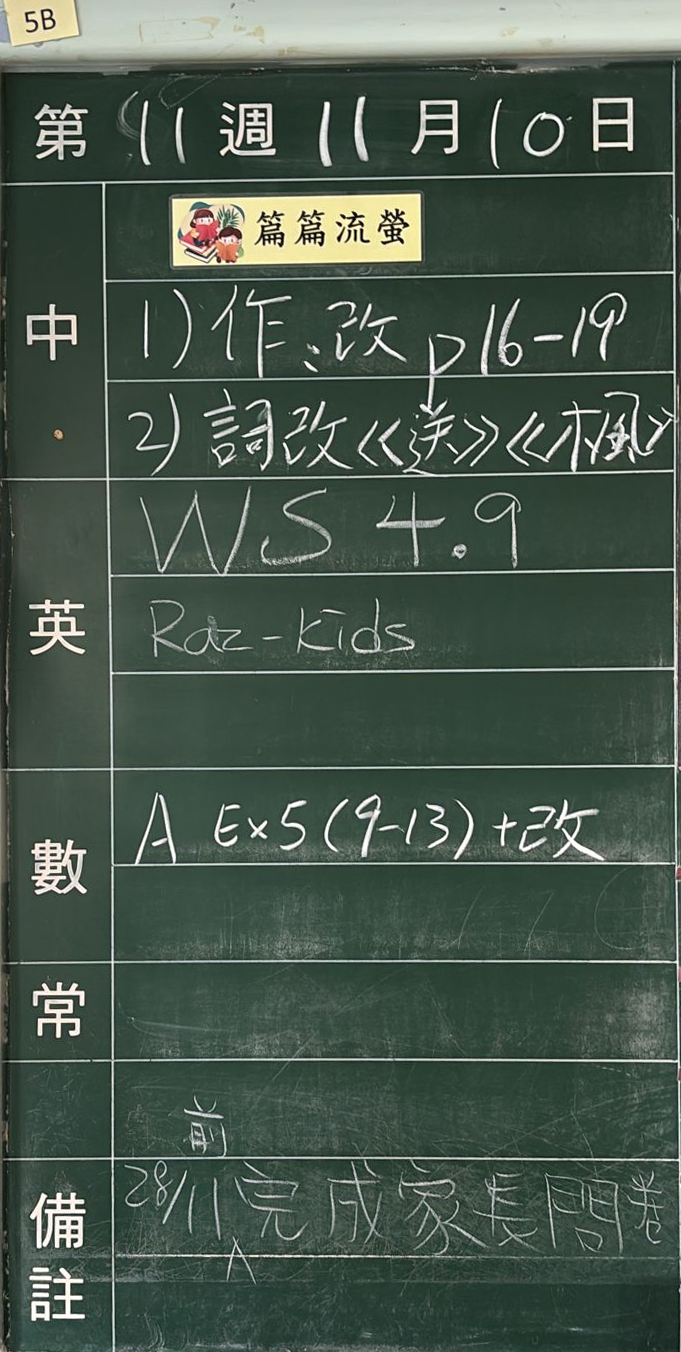 5B
第11週11月10日
篇篇流螢
中
1)作:改 p16-19
2)詞改<<送>><<楓>>
英
WS 4.9
Raz-Kids
數
A Ex5(9-13)+改
常
備註
28/11前完成家長問卷